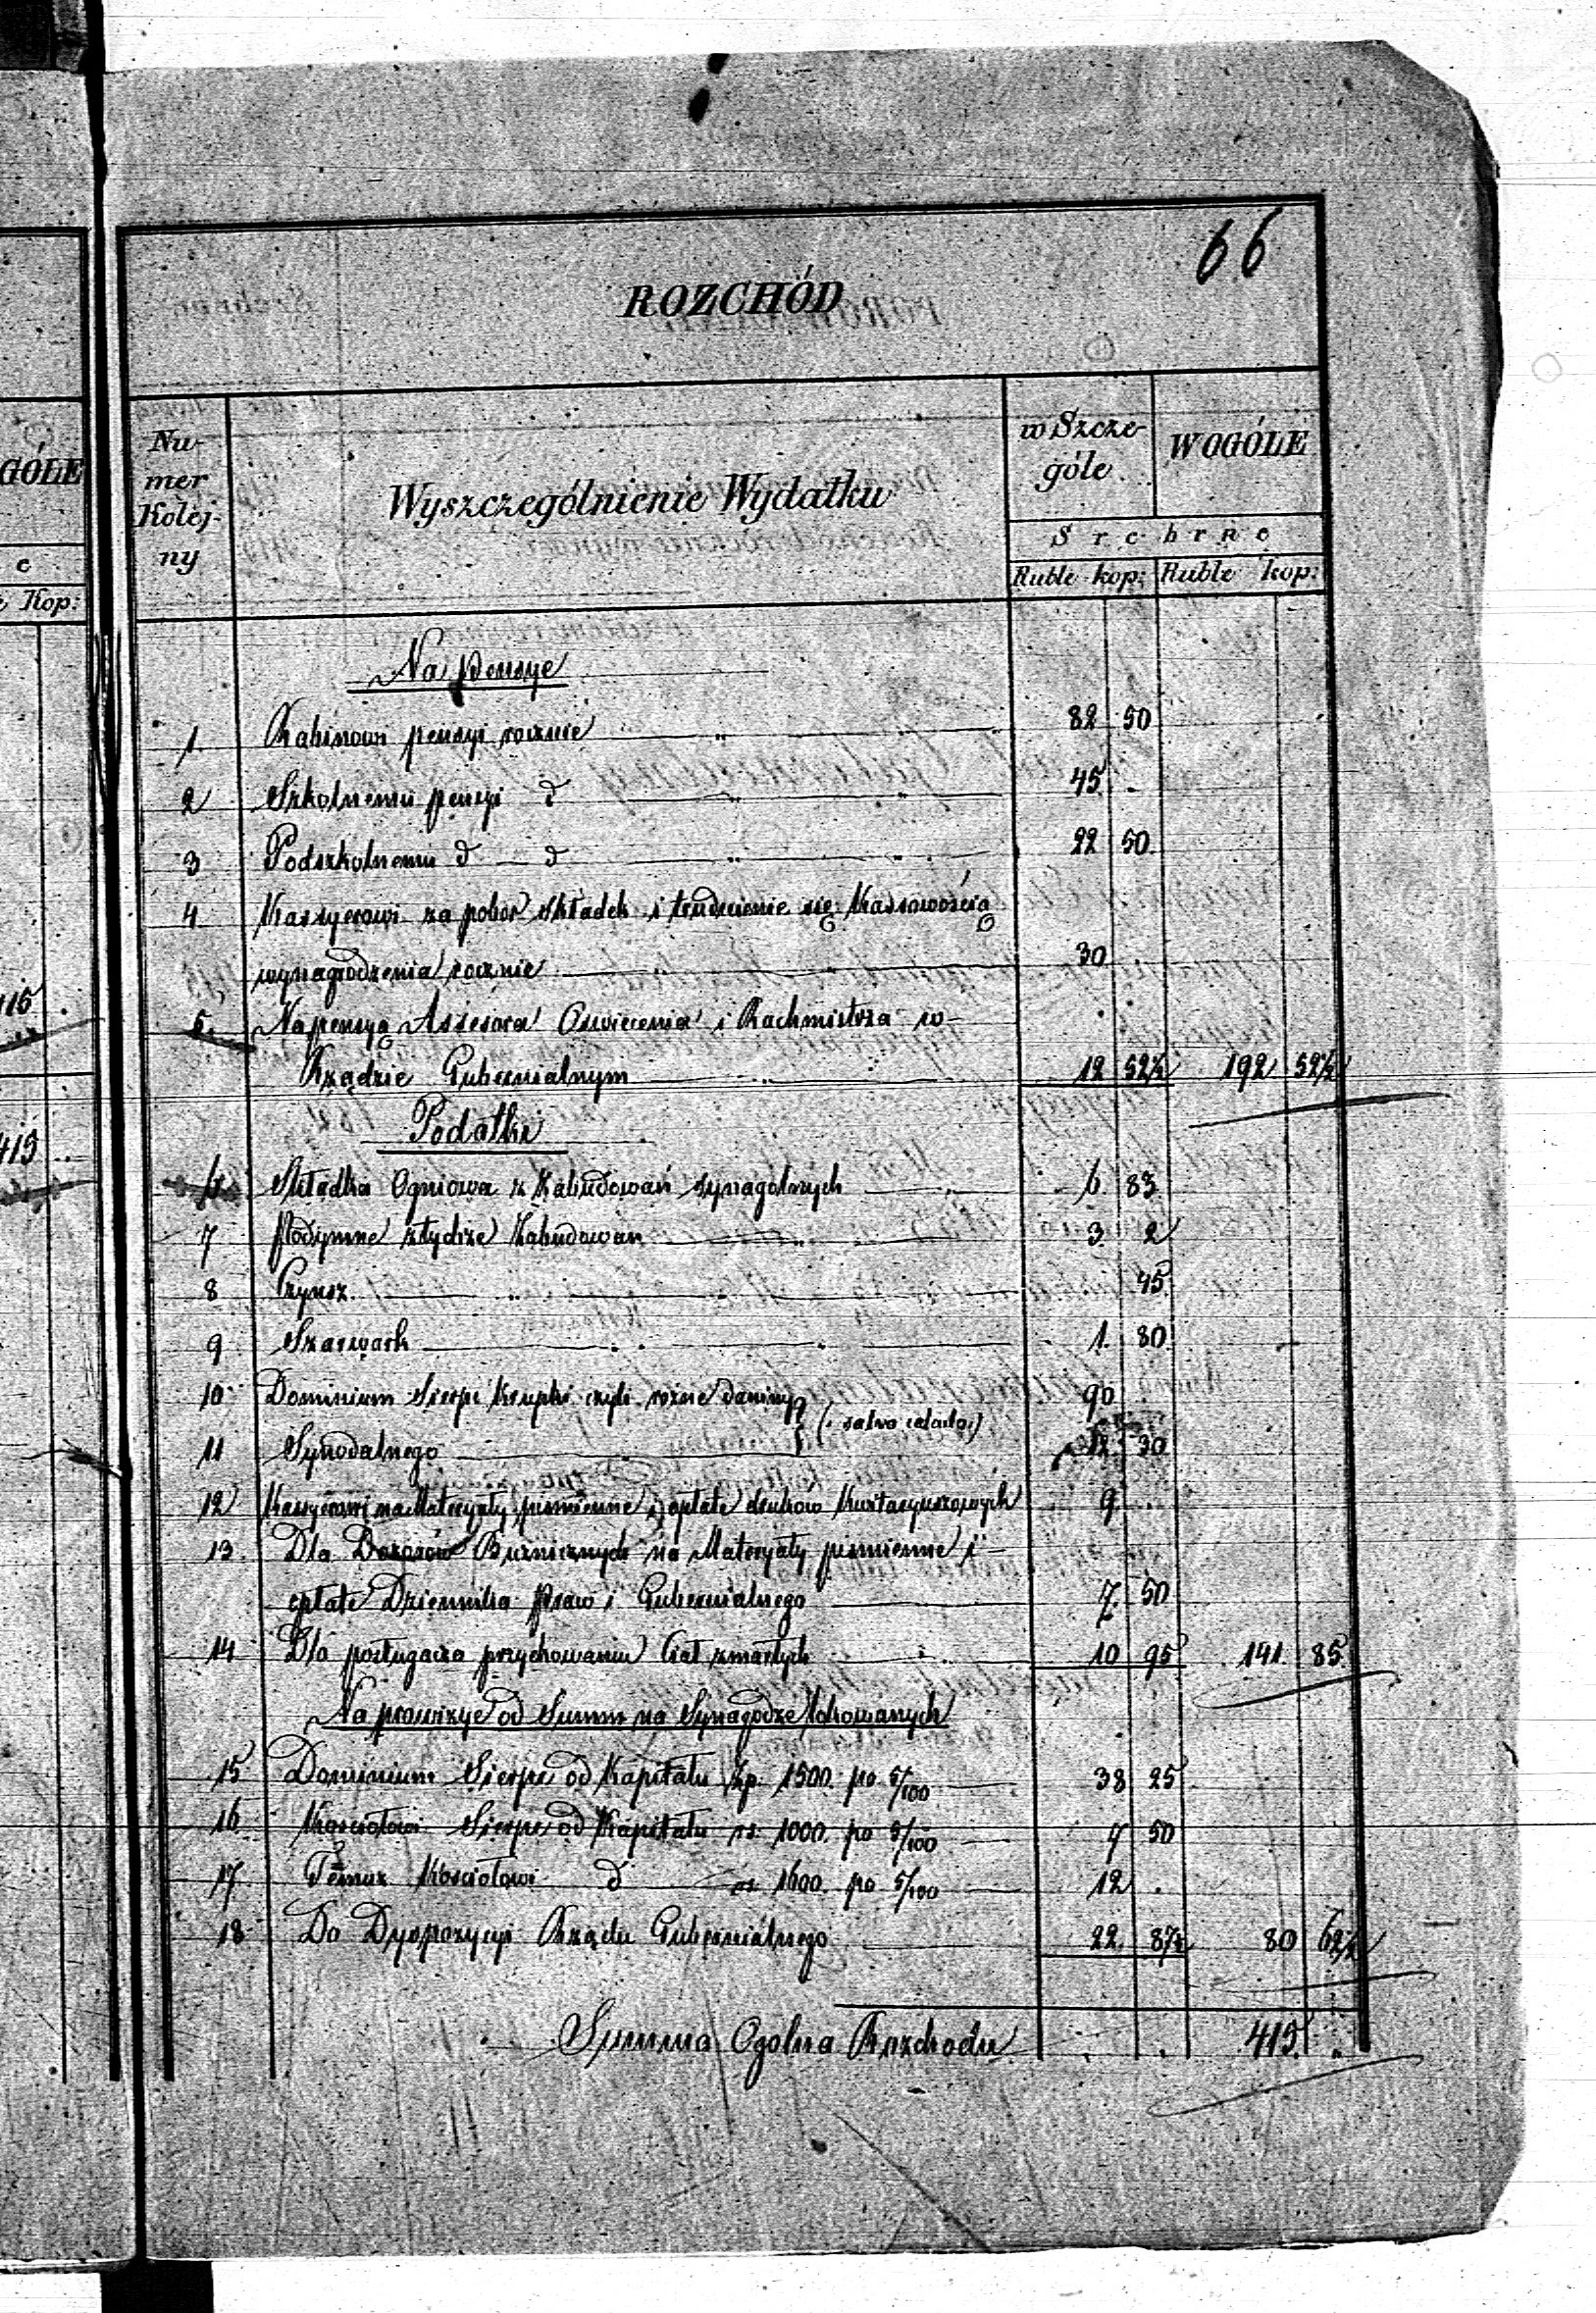 GÓLE
e
Kop:
415 .
415 ..
66
ROZCHÓD
Nu-
mer
Kolej-
ny
Wyszczególnienie Wydatku
w Szcze-
góle
W OGÓLE
Srebrne
Ruble kop: Ruble kop:
Na pensye
1 Rabinowi pensyi rocznie " " 82 50
2 Szkolnemu pensyi d " " 45 .
3 Podszkolnemu d d " " 22 50.
4 Kassyerowi za pobor składek i trudnienie się Kassowością
wynagrodzenia rocznie " " 30 .
5. Na pensyą Assesora Oswiecenia i Rachmistrza w
Rządzie Gubernialnym " 12 52½ 192 52½
Podatki
6 Składka Ogniowa z Zabudowań synagolnych " 6. 83
7 Podymne z tychże Zabudowan " 3. 2
8 Czynsz " " 45
9 Szarwark " " 1. 80.
10 Dominium Sierpc czyli rożne daniny 90 .
(: salvo calculo :)
11 Synodalnego 12 30
12 Kassyerowi na Materyały pismienne i opłatę druków Kwitaryuszowych 9. .
13 Dla Dozorów Bużnicznych na Materyały pismienne i
opłatę Dziennika Praw i Gubernialnego 7. 50
14 Dla posługacza przychowaniu Ciał zmarłych " 10 95 141. 85.
Na prowizye od Summ na Synagodze lokowanych
15 Dominium Sierpc od Kapitału Zp. 1500. po 5/100 38 25
16 Kosciołowi Sierpc od Kapitału rs. 1000. po 5/100 7 50
17 Temuż Kosciołowi d 1600. po 5/100 12 .
18 Do Dyspozycyi Rządu Gubernialnego 22. 87½ 80 62½
Summa Ogolna Rozchodu 415. .